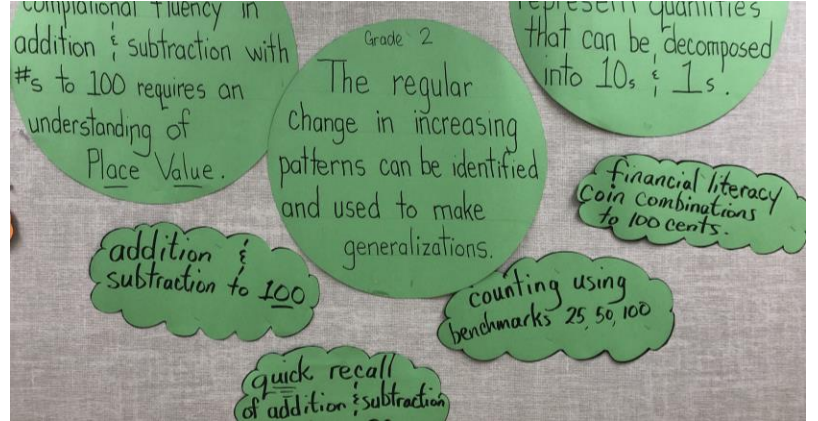 fluency in
addition & subtraction with
#s to 100 requires an
understanding of
Place Value.
Grade 2
The regular
change in increasing
patterns can be identified
and used to make
generalizations.
represent quantities
that can be decomposed
into 10s & 1s.
financial literacy
coin combinations
to 100 cents.
addition &
subtraction to 100
counting using
benchmarks 25, 50, 100
quick recall
of addition & subtraction